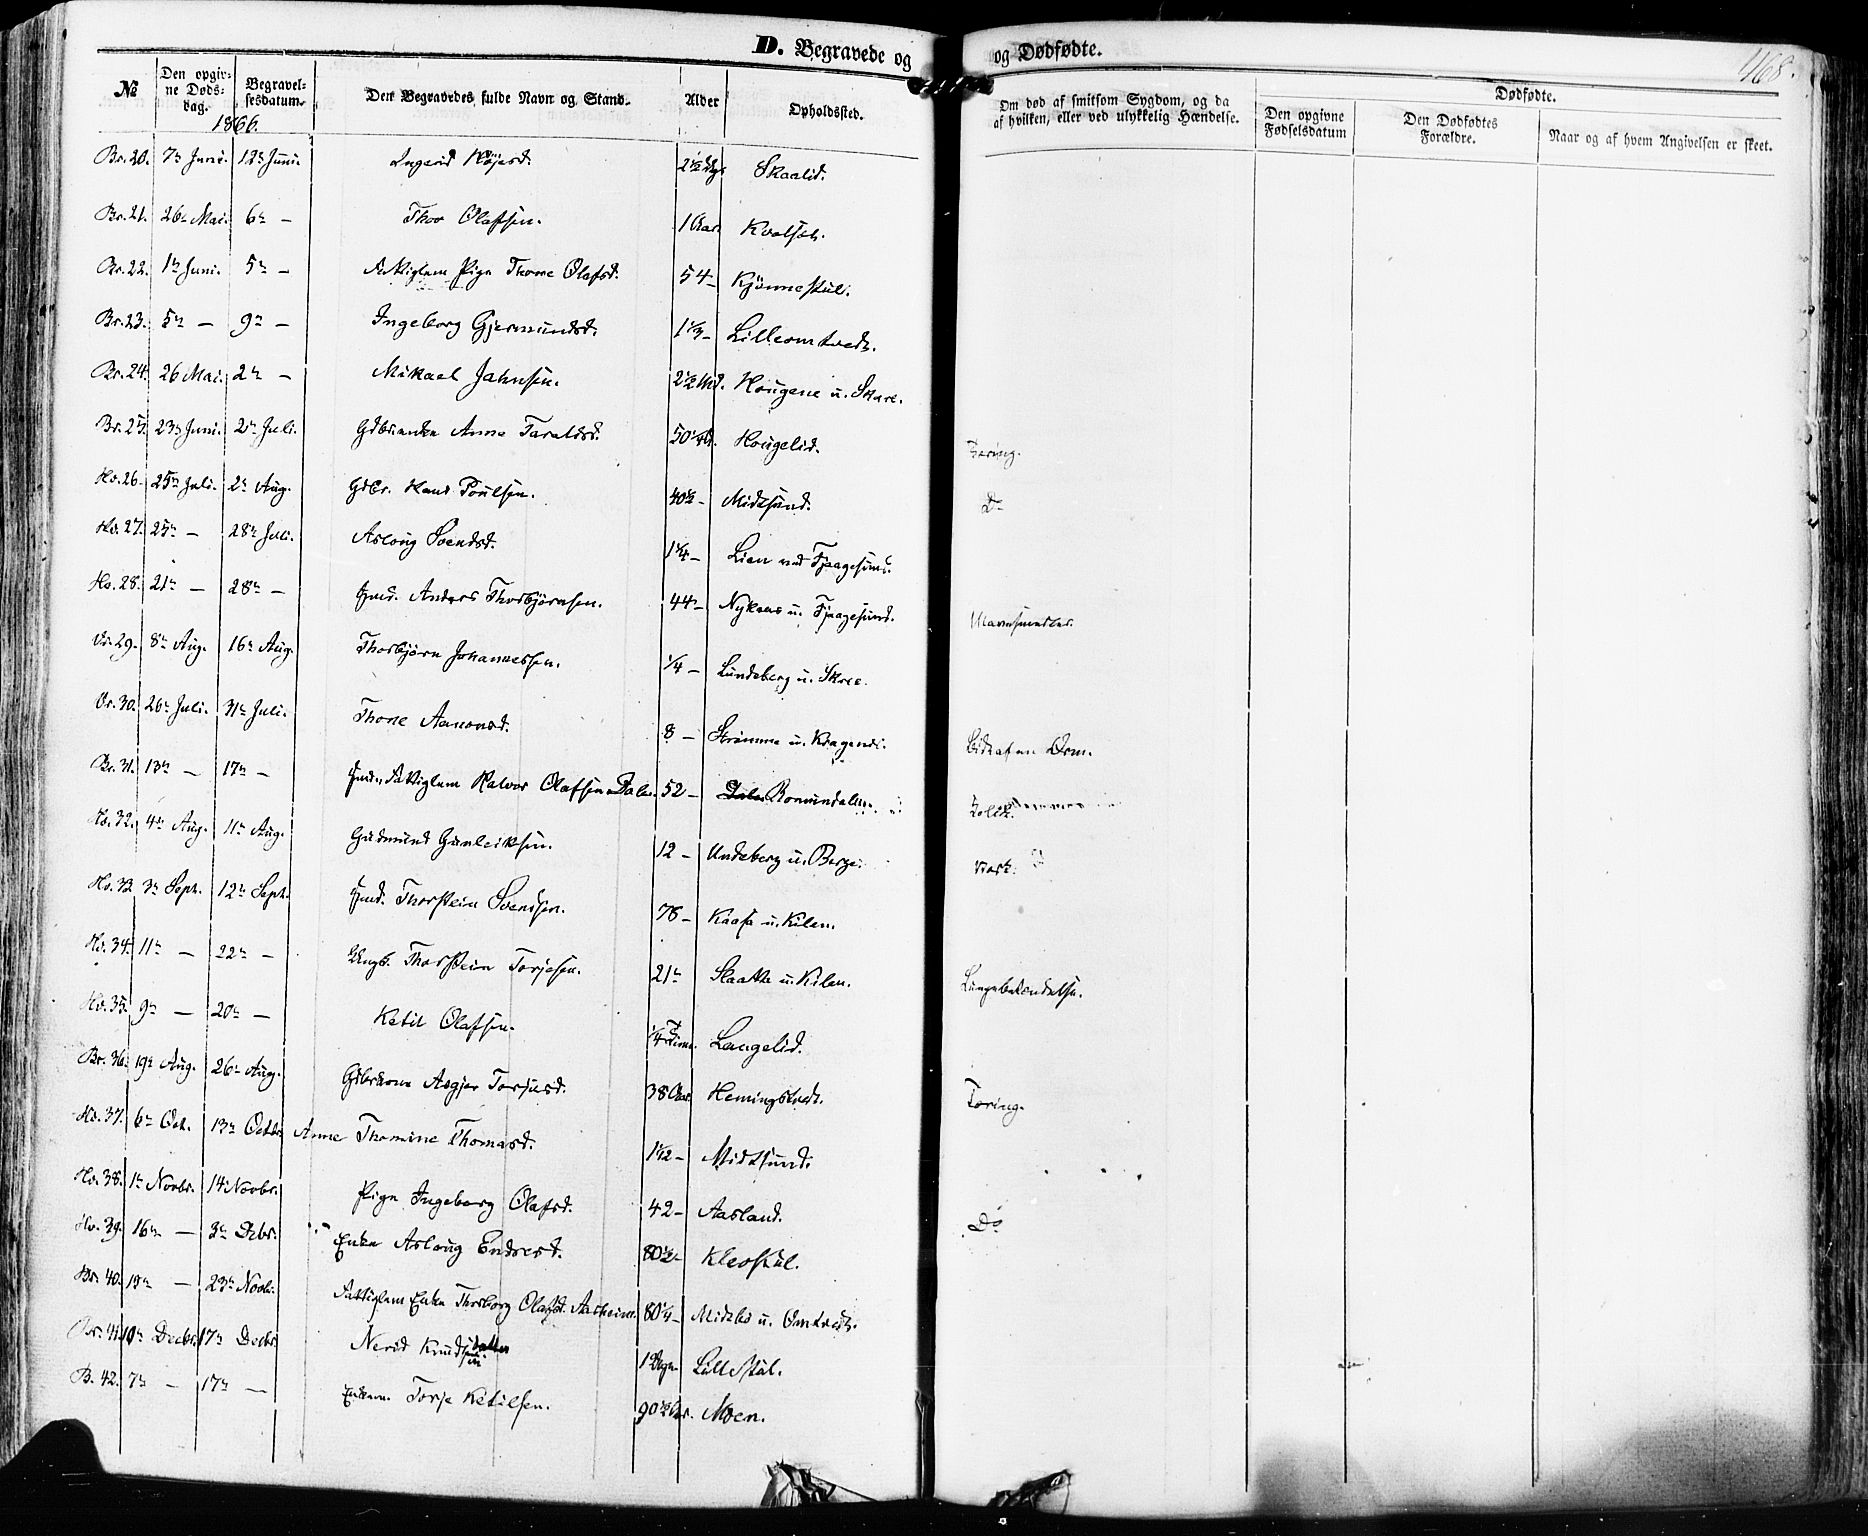 D. Begravede og
og Dødfødte.
468.
№ Den opgivne Dødsdag. Begravelsesdatum. Den Begravedes fulde Navn og Stand. Alder Opholdssted. Om død af smitsom Sygdom, og da af hvilken, eller ved ulykkelig Hændelse. Dødfødte. Den opgivne Fødselsdatum Den Dødfødtes Forældre. Naar og af hvem Angivelsen er skeet.
1866.
Br. 20. 7n Juni. 12n Juni. Ingerid 2 1/2 Skaalid.
Br. 21. 26n Mai. 6n — Thov Olafsen. 1 Aar
Br. 22. 1n Juni. 5n — Fattiglem Pige Thone Olafsd. 54 — Kjönnestul.
Br. 23. 5n — 9n — Ingeborg Gjermundsd. 1 1/3 — Lilleomtvedt.
Br. 24. 26 Mai. 2n — Mikael Jahnsen. 2 1/2 Md. Hougene u. Skare.
Br. 25. 23n Juni. 2n Juli. Gdbr.enke Anne Taraldsd. 50 Hougelid. Tæring.
Hv. 26. 25n Juli. 2n Aug. Gdbr. Hans Poulsen. 40 1/2 — Midtsund. Do
Hv. 27. 25n — 28n Juli. Asloug Svendsd. 1 1/4 — Lien ved Fjaagesund.
Hv. 28. 21n — 28n — Hmd. Anders Thorbjörnsen. 44 — Nykaas u. Fjaagesund.
Vr. 29. 8n Aug. 16n Aug. Thorbjörn Johannessen. 1/4 — Lundeberg u. Skree.
Vr. 30. 26n Juli. 31n Juli. Thone Aanonsd. 8 — Strömme u. Bidt af en Orm.
Br. 31. 13n — 17n — Fattiglem Halvor Olafsen Dale. 52 — Romundalen.
Hv. 32. 4n Aug. 11n Aug. Gudmund Gunleiksen. 12 — Undeberg u. Berge.
Hv. 33. 3n Sept. 12n Sept. Hmd. Thorstein Svendsen. 78 — Kaasa u. Kilen.
Hv. 34. 11n — 22n — Ungk. Thorstein Torjesen. 21n Slaatta u. Kilen. Lungebetændelse.
Hv. 35. 9n — 20n — Ketil Olafsen. 1/4 Time. Langelid.
Br. 36. 19n Aug. 26n Aug. Gdbrkone Asgjer Torjusd. 38 Aar Hemingstvedt. Tæring.
Hv. 37. 6n Oct. 13n Octbr. Anne Thomine Thomasd. 1 1/12 — Midtsund.
Hv. 38. 1n Novbr. 14 Novbr. Pige Ingeborg Olafsd. 42 — Aasland. Do
Hv. 39. 16n — 3n Dcbr. Enke Aslaug Endresd. 80 1/2 — Kleostul.
Br. 40. 19n — 23n Novbr. Fattiglem Enke Thorborg Olafsd. Aasheim. 80 1/4 — Midtbö u. Omtvedt.
Br. 41. 10n Decbr. 17n Decbr. Nerid Knudsdatter 1 Lillestul.
B. 42. 7n — 17n — Enkem. Torje Ketilsen. 90 1/2 Moen.